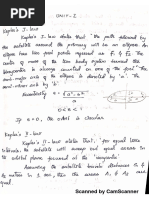 UNIT-I
Kepler's I-law
Kepler's I-law states that "the path followed
by the satellite around the primary will be an ellipse. An
ellipse has two focal points represented as F1 & F2. The
center of mass of the
is always centered on one of the foci. The
semi-major axis of the ellipse is denoted by 'a'. The
semi-minor axis is denoted by 'b'.
Eccentricity
0 ≤ e < 1
If e=0, the orbit is circular
Kepler's II-law
Kepler's II-law states that, "for equal time
intervals, the satellite will sweep out equal areas in
the orbital plane focused at the "barycenter".
Assuming the satellite travels distances S1 &
S2 meters in 1 sec, then the areas A1 & A2 are
equal.
Scanned by CamScanner